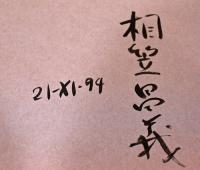 相笠昌義
21-XI-94